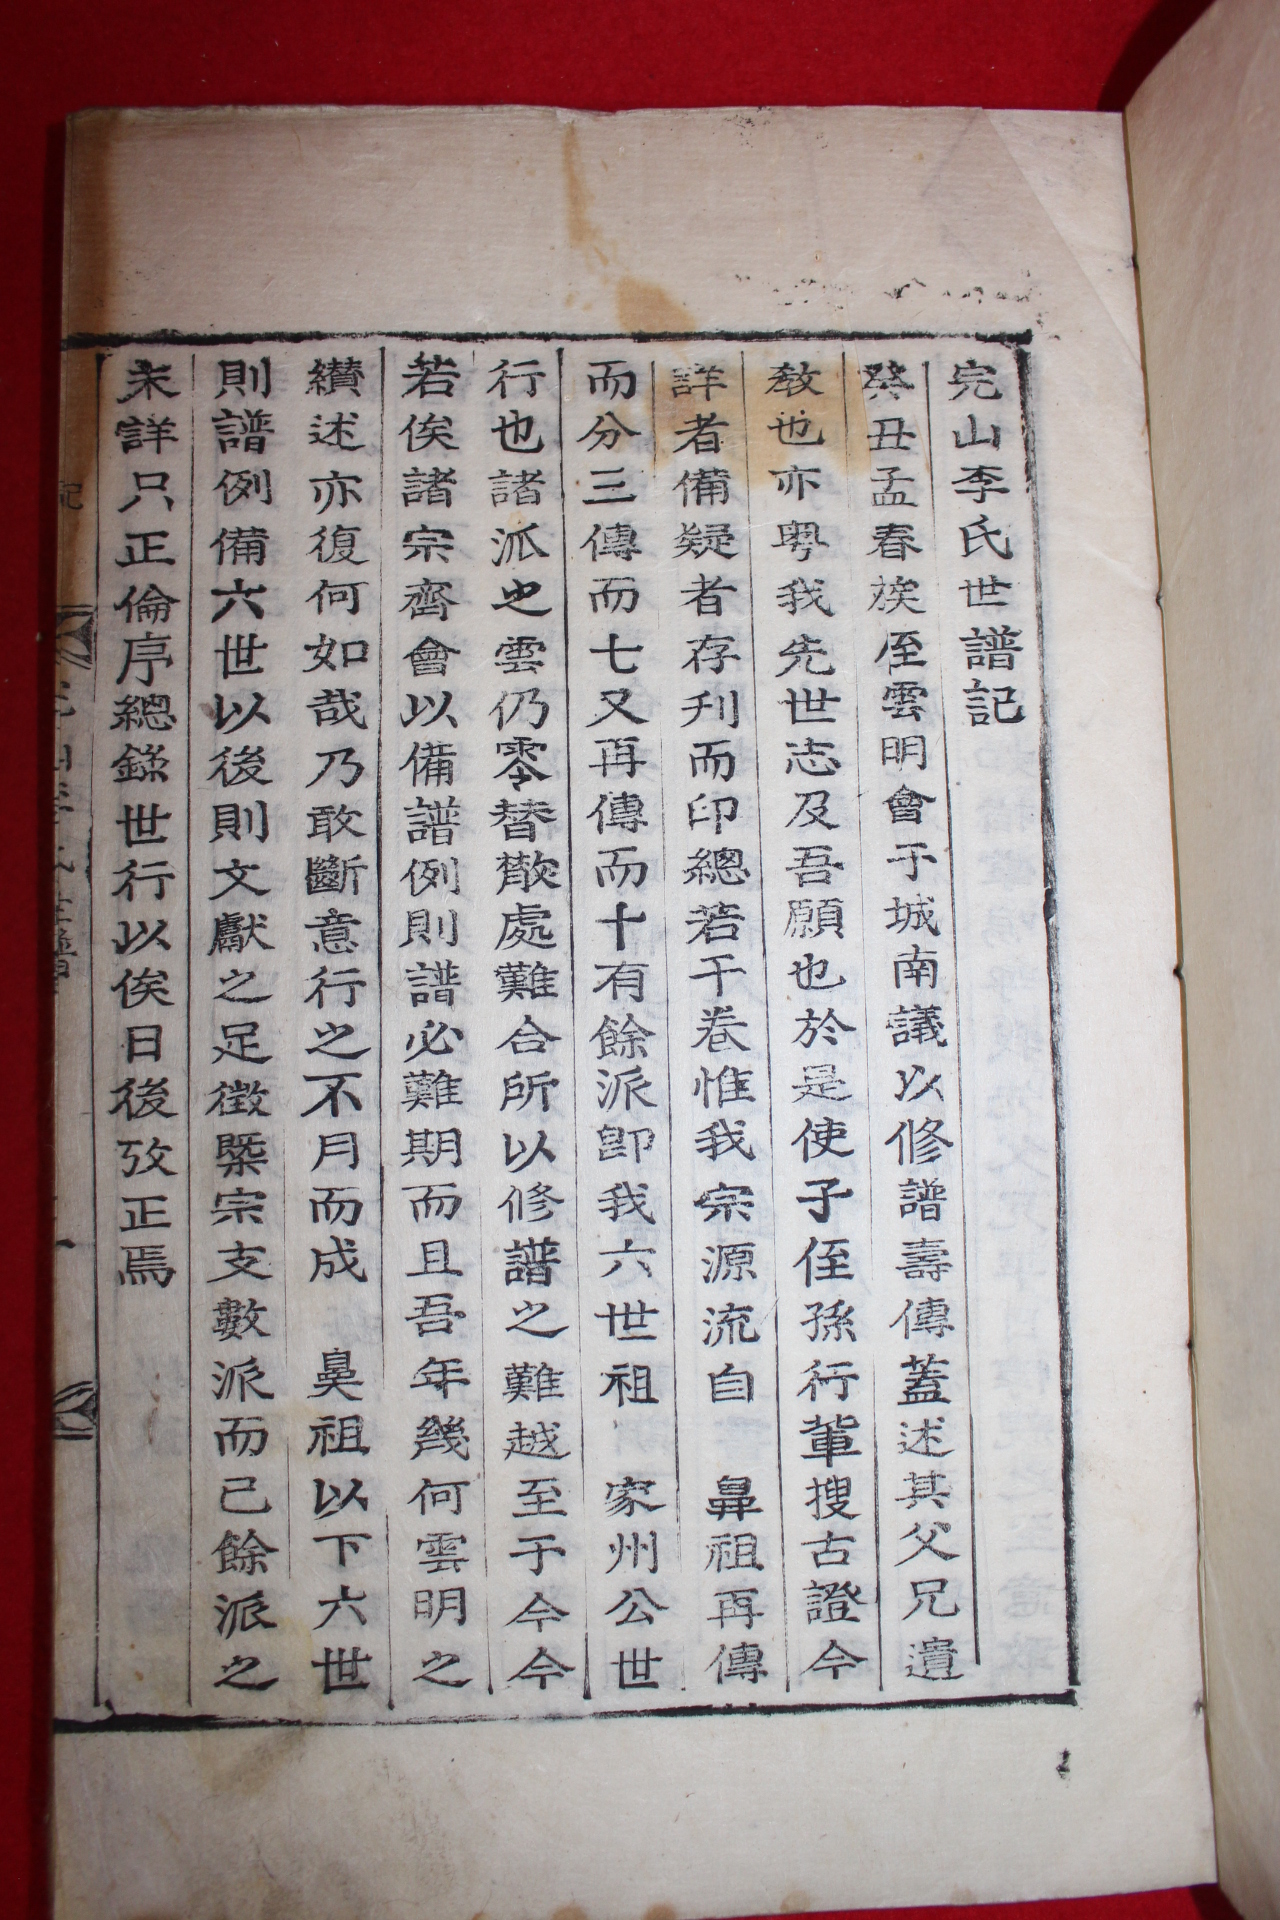 完山李氏世譜記
癸丑孟春族侄雲明會于城南議以修譜壽傳蓋述其父兄遺
敎也亦粤我先世志及吾願也於是使子侄孫行輩搜古證今
詳者備疑者存刋而印總若干卷惟我宗源流自 鼻祖再傳
而分三傳而七又再傳而十有餘派卽我六世祖 家州公世
行也諸派之雲仍零替散處難合所以修譜之難越至于今今
若俟諸宗齊會以備譜例則譜必難期而且吾年幾何雲明之
纘述亦復何如哉乃敢斷意行之不月而成 鼻祖以下六世
則譜例備六世以後則文獻之足徵槩宗支數派而已餘派之
未詳只正倫序總錄世行以俟日後攷正焉
記